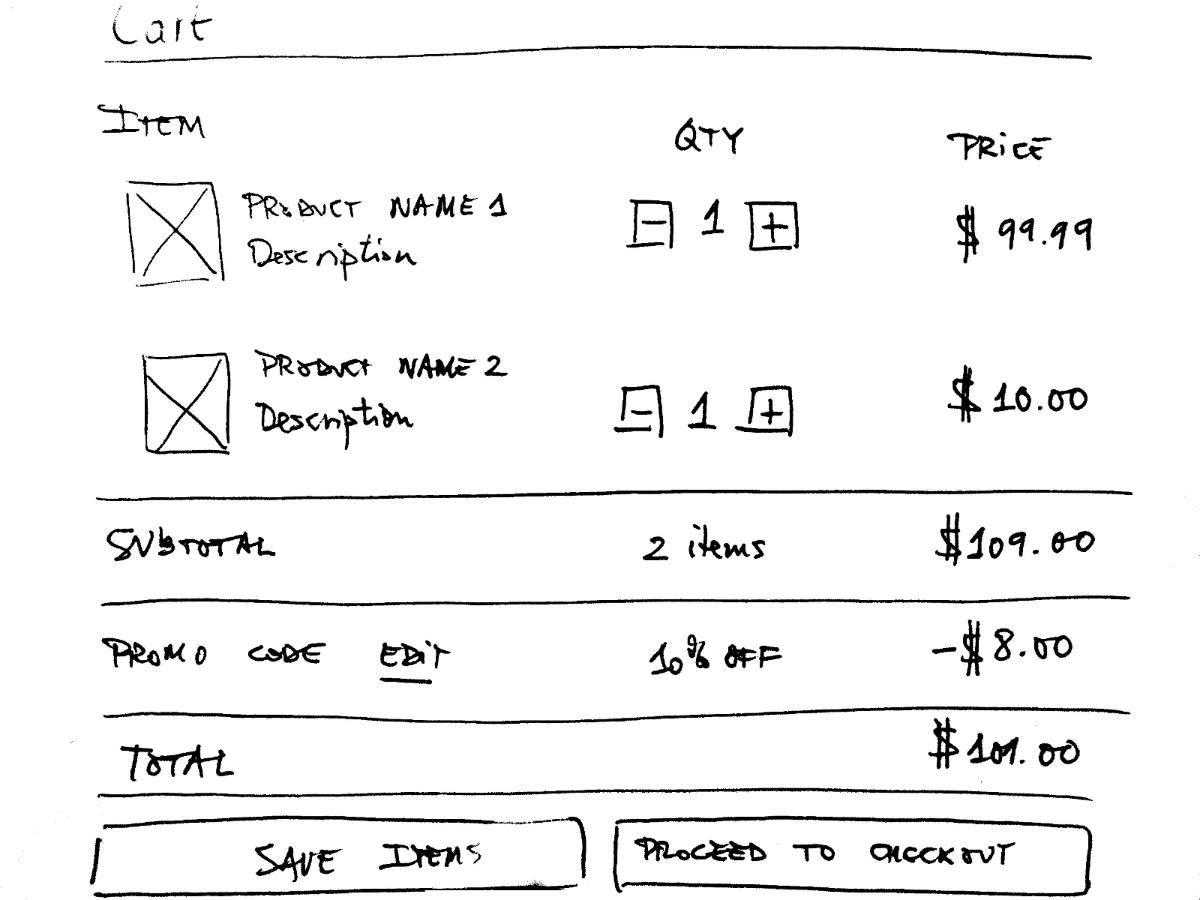 Cart
ITEM QTY PRICE
PRODUCT NAME 1 - 1 + $ 99.99
Description
PRODUCT NAME 2 - 1 + $ 10.00
Description
SUBTOTAL 2 items $109.00
PROMO CODE EDIT 10% OFF -$8.00
TOTAL $101.00
SAVE ITEMS PROCEED TO CHECKOUT